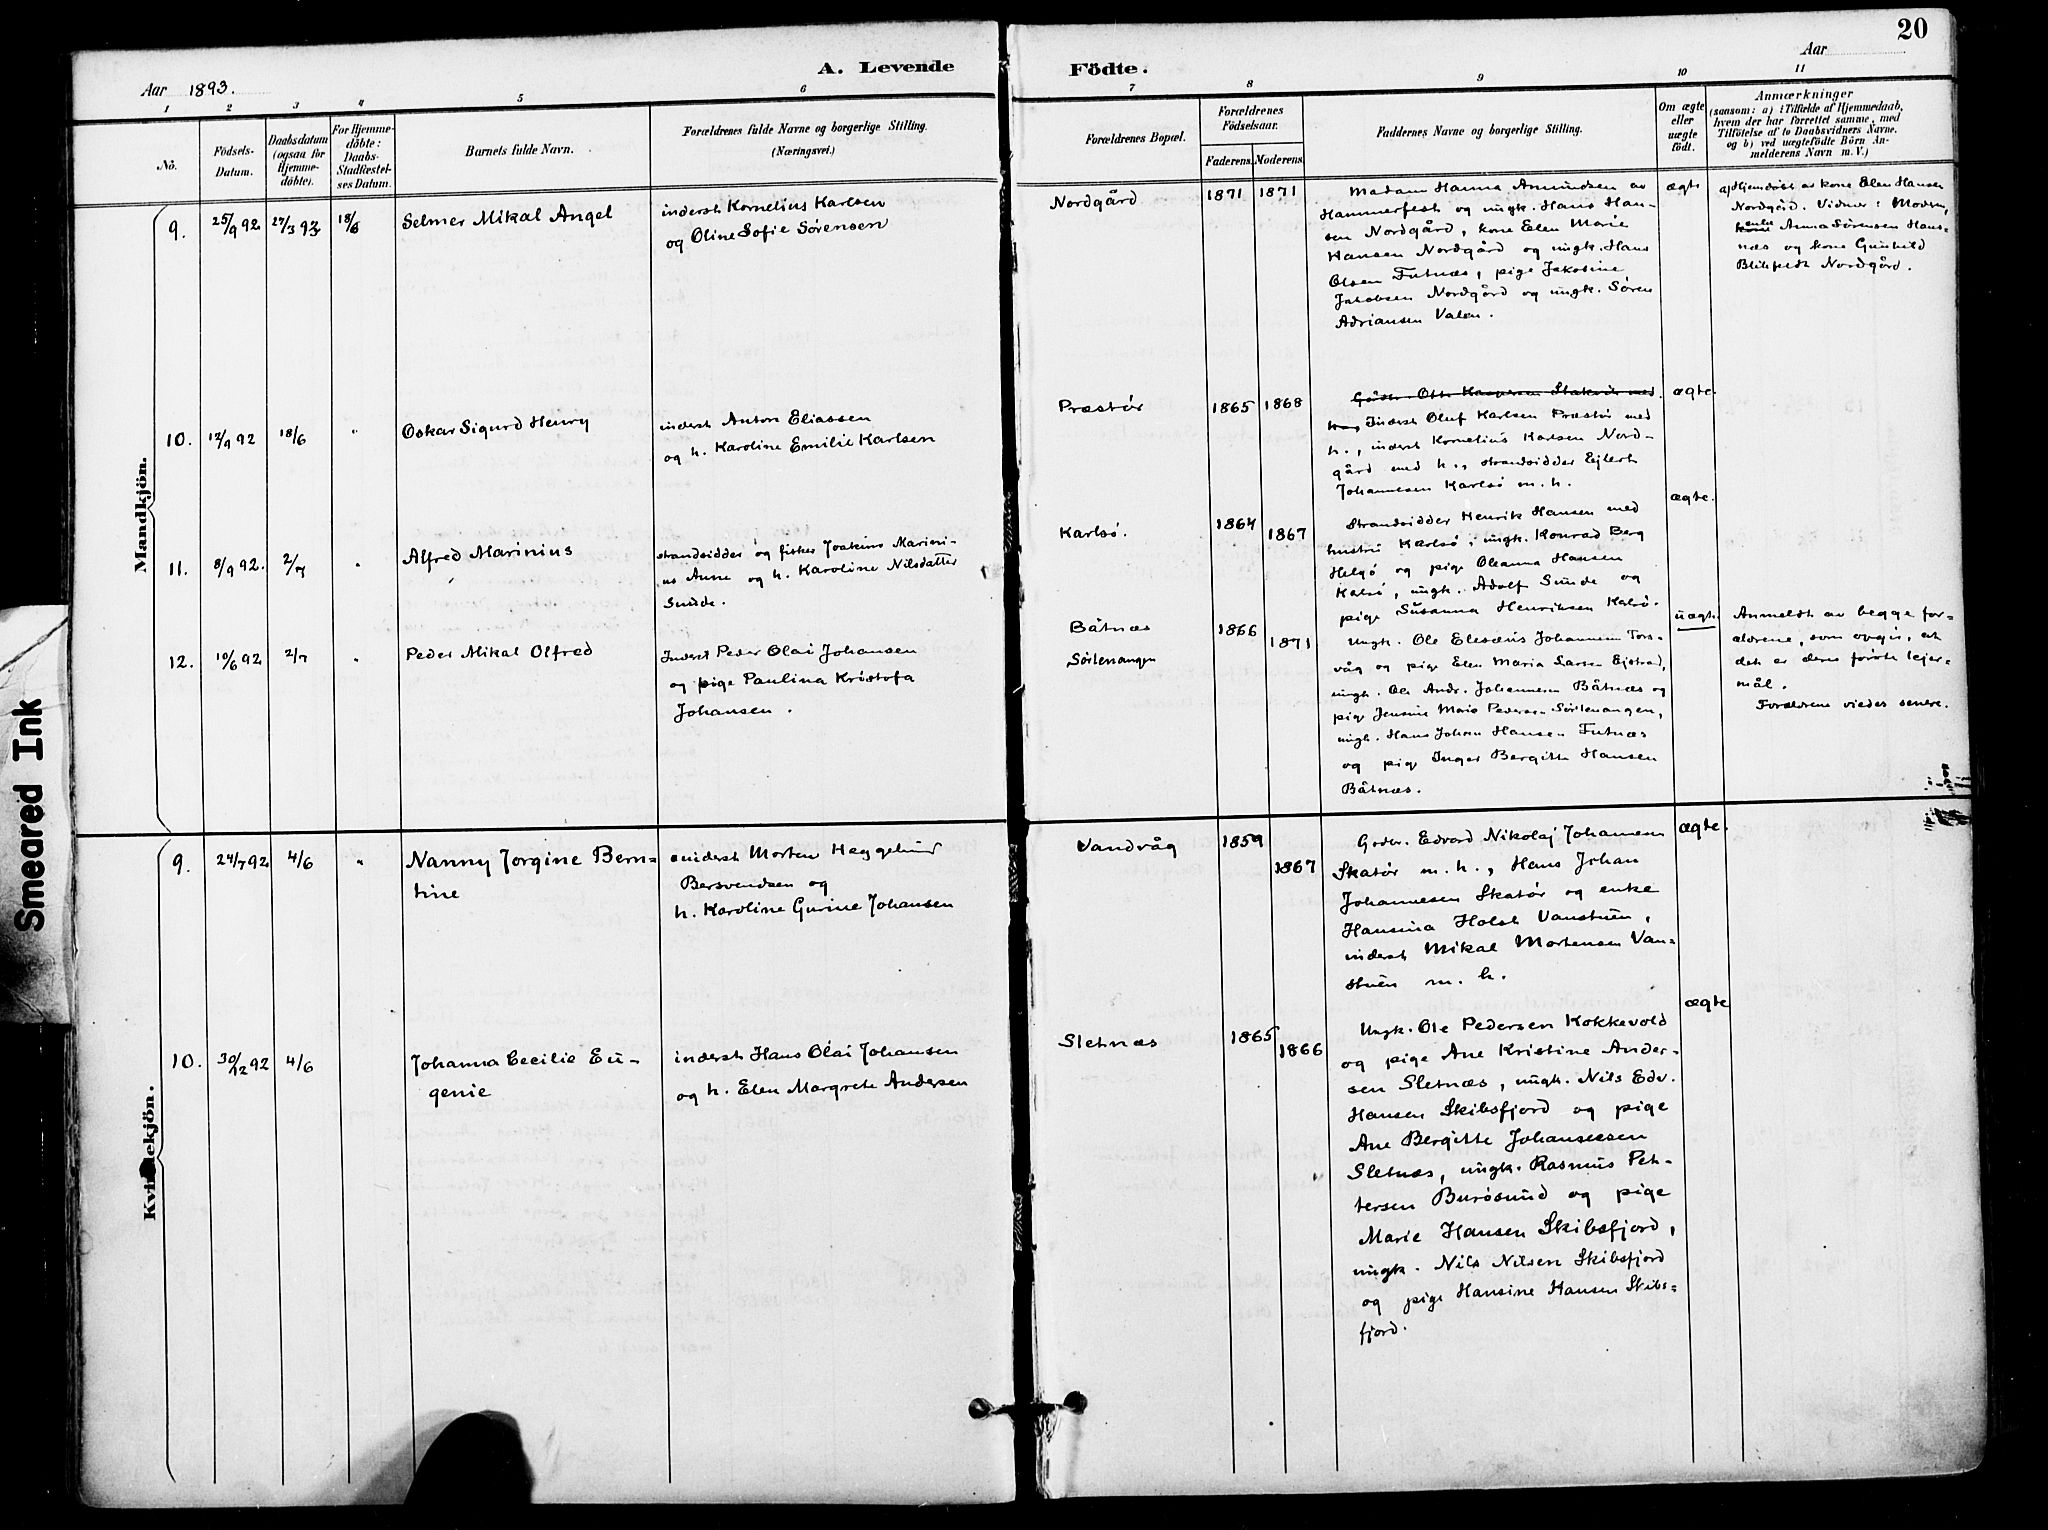 20
A. Levende Födte.
Aar 1893.
Aar
1 2 3 4 5 6 7 8 9 10 11
Nö.
Födsels-
Datum.
Daabsdatum
(ogsaa for
Hjemme-
döbte).
For Hjemme-
döbte:
Daabs-
Stadfæstel-
ses Datum.
Barnets fulde Navn.
Forældrenes fulde Navne og borgerlige Stilling.
(Næringsvei.)
Forældrenes Bopæl.
Forældrenes
Födselsaar.
Faderens. Moderens.
Faddernes Navne og borgerlige Stilling.
Om ægte
eller
uægte
födt.
Anmærkninger
(saasom: a) i Tilfælde af Hjemmedaab,
hvem der har forrettet samme, med
Tilföielse af to Daabsvidners Navne.
og b) ved uægtefödte Börn An-
melderens Navn m. V.)
Mandkjön.
9. 25/9 92 27/3 93 18/6
Selmer Mikal Angel
inderst Kornelius Karlsen
og Oline Sofie Sørensen
Nordgård
1871 1871
Madam Hanna Amundsen av
Hammerfest og ungk. Hans Han-
sen Nordgård, kone Elen Marie
Hansen Nordgård og ungk. Hans
Olsen Futnæs, pige Jakobine
Jakobsen Nordgård og ungk. Søren
Adriansen Valen.
ægte
a) Hjemdøbt av kone Elen Hansen
Nordgård. Vidner: Moderen,
enke
kone Anna Sørensen Hans-
næs og kone Gunhild
Blikfeldt Nordgård.
10. 12/9 92 18/6 "
Oskar Sigurd Henry
inderst Anton Eliassen
og h. Karoline Emilie Karlsen
Præstør
1865 1868
Gårdbr. Ott Kaspersen Stakvik med
h., Inderst Oluf Karlsen Præstør med
h., inderst Kornelius Karlsen Nord-
gård med h., strandsidder Ejlert
Johannesen Karlsø m. h.
ægte.
11. 8/9 92. 2/7 "
Alfred Marinius
strandsidder og fisker Joakim Marini-
us Anne og h. Karoline Nilsdatter
Sunde.
Karlsø.
1864 1867
Strandsidder Henrik Hansen med
hustru Karlsø, ungk. Konrad Berg
Helgø og pige Oleanna Hansen
Kalsø, ungk. Adolf Sunde og
pige Susanna Henriksen Kalsø.
ægte.
12. 10/6 92 2/7 "
Peder Mikal Olfred
Inderst Peder Olai Johansen
og pige Paulina Kristofa
Johansen.
Båtnæs
Sörlenangen
1866 1871
Ungk. Ole Elesæus Johannesen Tors-
våg og pige Elen Maria Larsen Ejstrad,
ungk. Ole Andr. Johannesen Båtnæs og
pige Jensine Marie Pedersen Sørlenangen,
ungk. Hans Johan Hansen Futnæs
og pige Inger Bergitte Hansen
Båtnæs.
uægte
Anmeldt av begge for-
ældrene, som opgir, at
det er deres første lejer-
mål.
Forældrene viedes senere.
Kvindekjön.
9. 24/7 92 4/6 "
Nanny Jorgine Bern-
tine
inderst Morten Heggelund
Bersvendsen og
h. Karoline Gurine Johansen
Vandvåg
1859 1867
Gårdbr. Edvard Nikolaj Johannesen
Skatør m. h., Hans Johan
Johannesen Skatør og enke
Hansina Holst Vanstuen,
inderst Mikal Mortensen Van-
stuen m. h.
ægte.
10. 30/12 92 4/6
Johanna Cecilie Eu-
genie
inderst Hans Olai Johansen
og h. Elen Margrete Andersen
Sletnæs
1865 1866
Ungk. Ole Pedersen Kokkevold
og pige Ane Kristine Ander-
sen Sletnæs, ungk. Nils Edv.
Hansen Skibsfjord og pige
Ane Bergitte Johannesen
Sletnæs, ungk. Rasmus Pet-
tersen Burøsund og pige
Marie Hansen Skibsfjord,
ungk. Nils Nilsen Skibsfjord
og pige Hansine Hansen Skibs-
fjord.
ægte
Smeared Ink